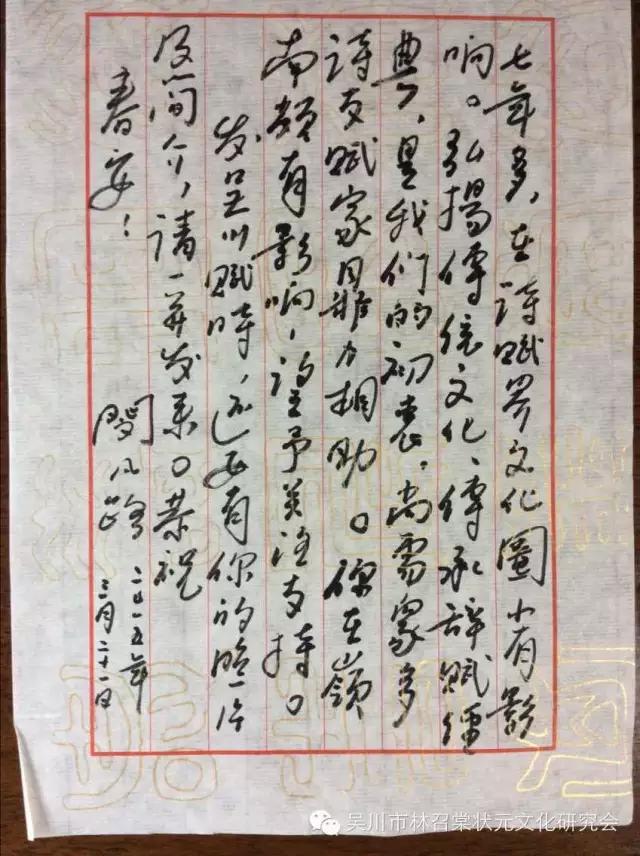 七年多，在诗赋界文化圈小有影
响。弘揚傳統文化、傳承辞赋經
典，是我们的初衷。尚需众多
诗友赋家用能力相助。你在嶺
南颇有影响，望予关注支持。
发吴川赋時，还要有你的照片
及简介，请一并发来。恭祝
春安！
闵凡路
二〇一五年
三月二十一日
吴川市林召棠状元文化研究会